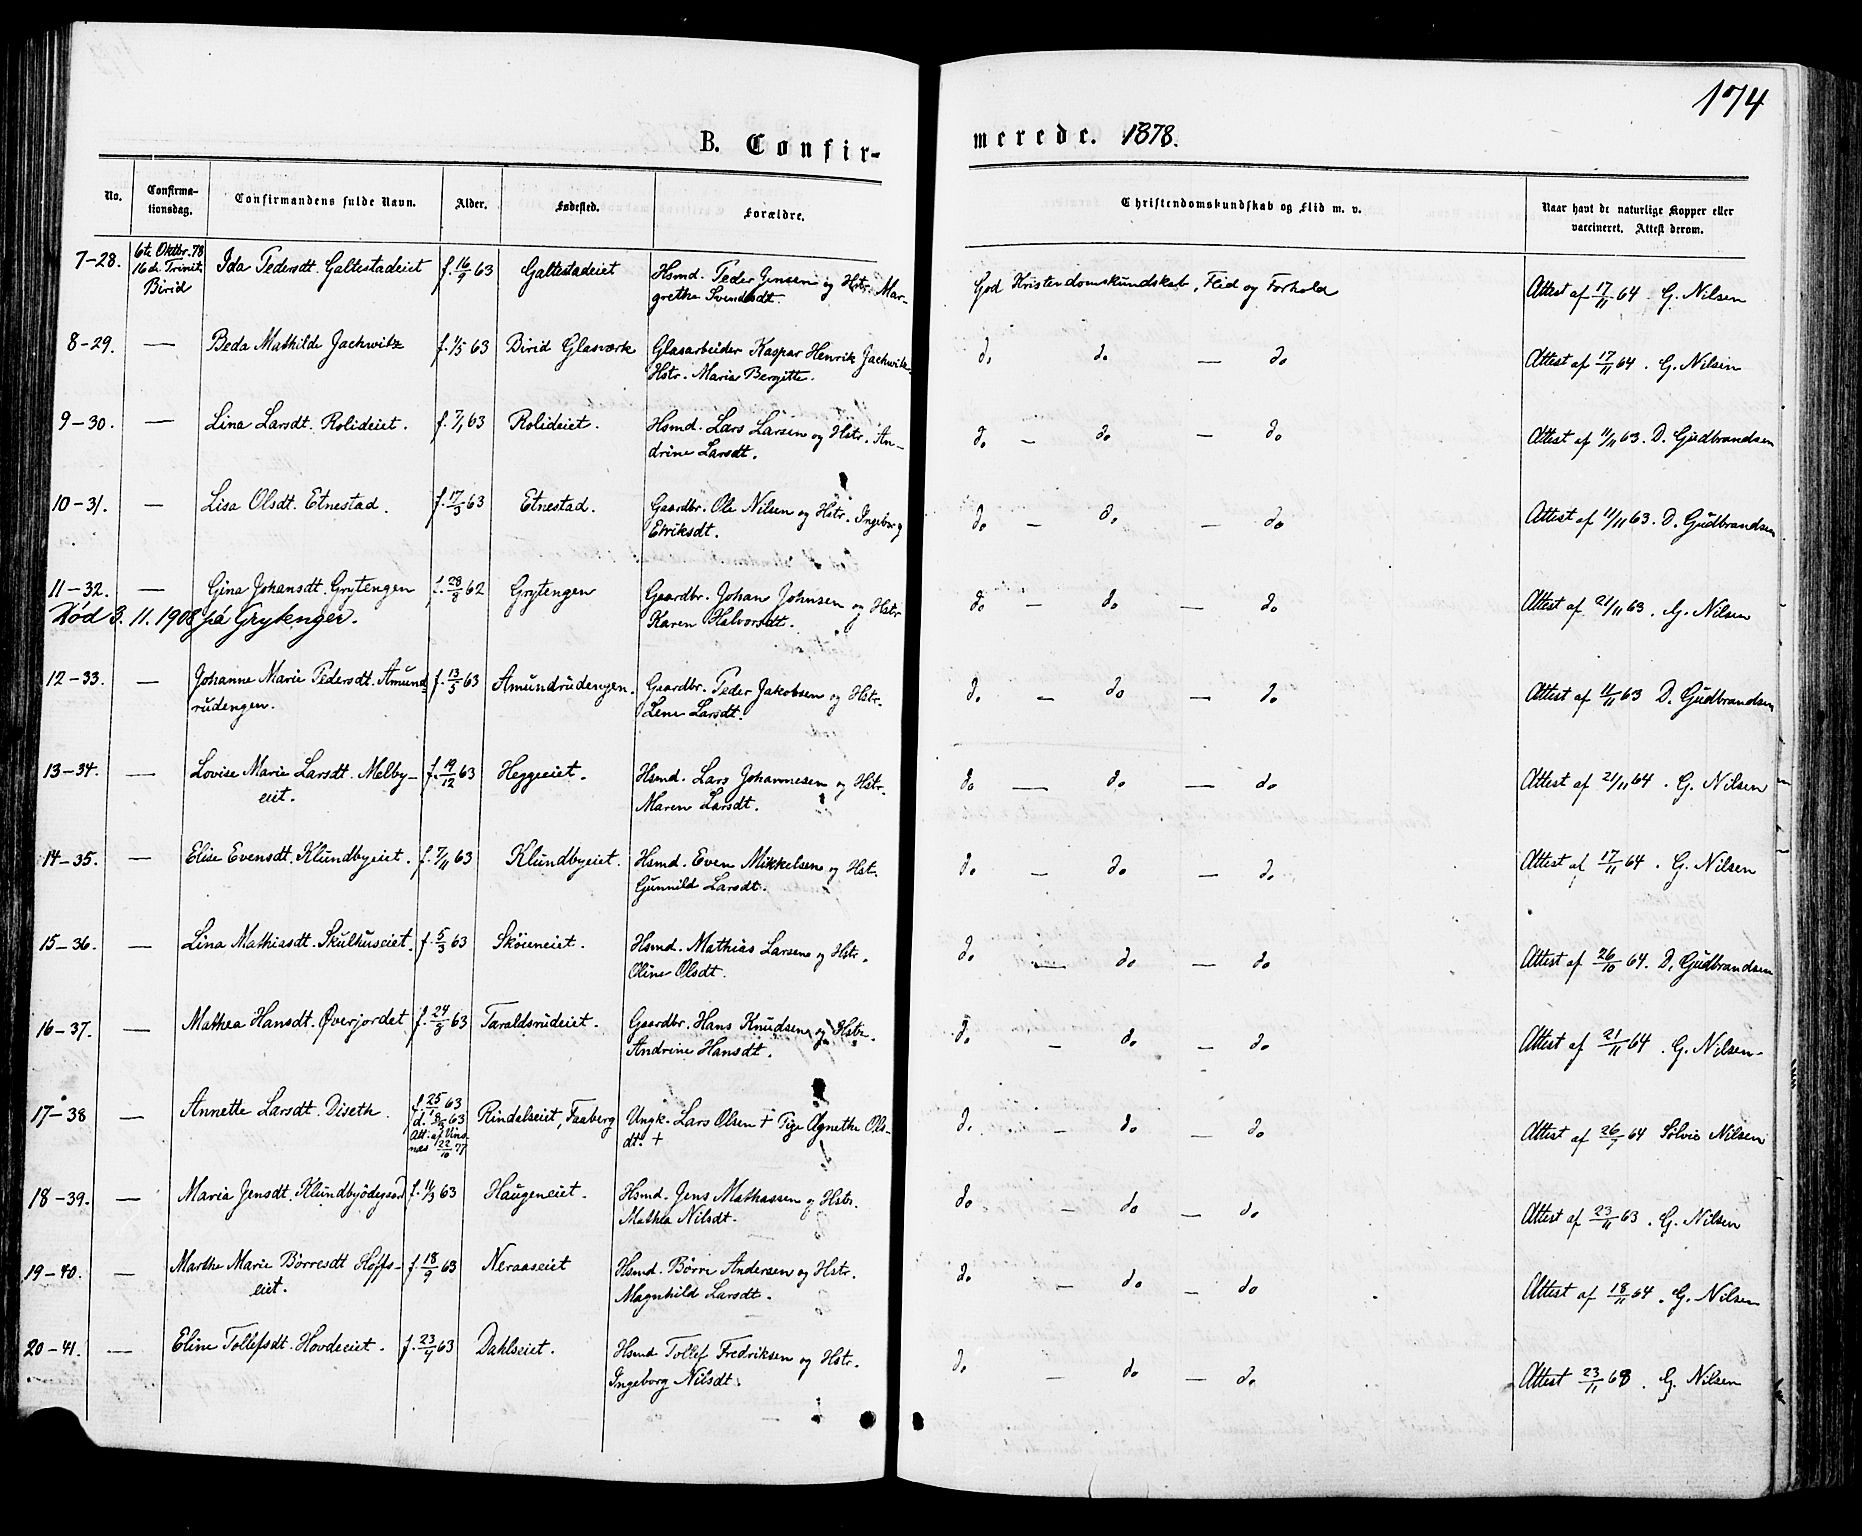 174
B. Confir-
merede. 1878.
No.
Confirma-
tionsdag.
Confirmandens fulde Navn.
Alder.
Fødested.
Forældre.
Christendomskundskab og Flid m. v.
Naar havt de naturlige Kopper eller
vaccineret. Attest derom.
7-28. 6te Oktbr. 78 Ida Pedersdt. Galtestadeiet f. 16/9 63 Galtestadeiet Hsmd. Peder Jensen og Hstr. Mar- God Kristendomskundskab, Flid og Forhold Attest af 17/11 64 G. Nilsen
16de Trinit. grethe Svendsdt.
Birid
8-29. — Beda Mathilde Jachwitz f. 1/5 63 Birid Glasværk Glasarbeider Kaspar Henrik Jachwitz do do — do Attest af 17/11 64. G. Nilsen
Hstr. Maria Bergitte.
9-30. — Lina Larsdt. Rolideiet. f. 7/1 63 Rolideiet. Hsmd. Lars Larsen og Hstr. An- do — do — do Attest af 11/11 63. D. Gudbrandsen
drine Larsdt.
10-31. — Lisa Olsdt. Etnestad. f. 17/3 63 Etnestad. Gaardbr. Ole Nilsen og Hstr. Ingeborg do — do — do Attest af 11/11 63. D. Gudbrandsen
Eriksdt.
11-32. — Gina Johansdt. Grytengen f. 28/8 62 Grytengen Gaardbr. Johan Johnsen og Hstr do — do — do Attest af 21/11 63. G. Nilsen
Død 3.11.1908 på Grytengen. Karen Halvorsdt.
12-33. — Johanne Marie Pedersdt. Amund- f. 13/5 63 Amundrudengen. Gaardbr. Peder Jakobsen og Hstr. do — do — do Attest af 11/11 63 D. Gudbrandsen
rudengen. Lene Larsdt.
13-34. — Lovise Marie Larsdt. Melby- f. 19/12 63 Heggeeiet. Hsmd. Lars Johannesen og Hstr. do — do — do Attest af 21/11 64. G. Nilsen
eiet. Maren Larsdt.
14-35. — Elise Evensdt. Klundbyeiet. f. 7/11 63 Klundbyeiet. Hsmd. Even Mikkelsen og Hst. do — do — do Attest af 17/11 64. G. Nilsen
Gunnild Larsdt.
15-36. — Lina Mathiasdt. Skulhuseiet. f. 5/3 63 Skøieneiet. Hsmd. Mathias Larsen og Hstr. do — do — do Attest af 26/10 64. D. Gudbrandsen
Oline Olsdt.
16-37. — Mathea Hansdt. Øverjordet f. 24/8 63 Taraldsrudeiet. Gaardbr. Hans Knudsen og Hstr. do — do — do Attest af 21/11 64. G. Nilsen.
Andrine Hansdt.
17-38 — Annette Larsdt. Diseth. f. 25/1 63 Rindalseiet, Faaberg Ungk. Lars Olsen + Pige Agnethe Ols- do — do — do Attest af 26/7 64 Sølvie Nilsen
dt. +
Att. af Vins-
næs 22/10 77
18-39. — Maria Jensdt. Klundbyødegaard f. 11/3 63 Haugeneiet. Hsmd. Jens Mathassen og Hstr. do — do — do Attest af 23/11 63. G. Nilsen
Mathea Nilsdt.
19-40. — Marthe Marie Børresdt Hoffs- f. 18/9 63 Neraaseiet Hsmd. Børre Andersen og Hstr. do — do — do Attest af 18/11 64. G. Nilsen
eiet. Magnhild Larsdt.
20-41. — Eline Tollefsdt. Hovdeeiet. f. 23/4 63 Dahlseiet. Hsmd Tollef Fredriksen og Hstr. do — do — do Attest 23/11 68. G. Nilsen
Ingeborg Nilsdt.